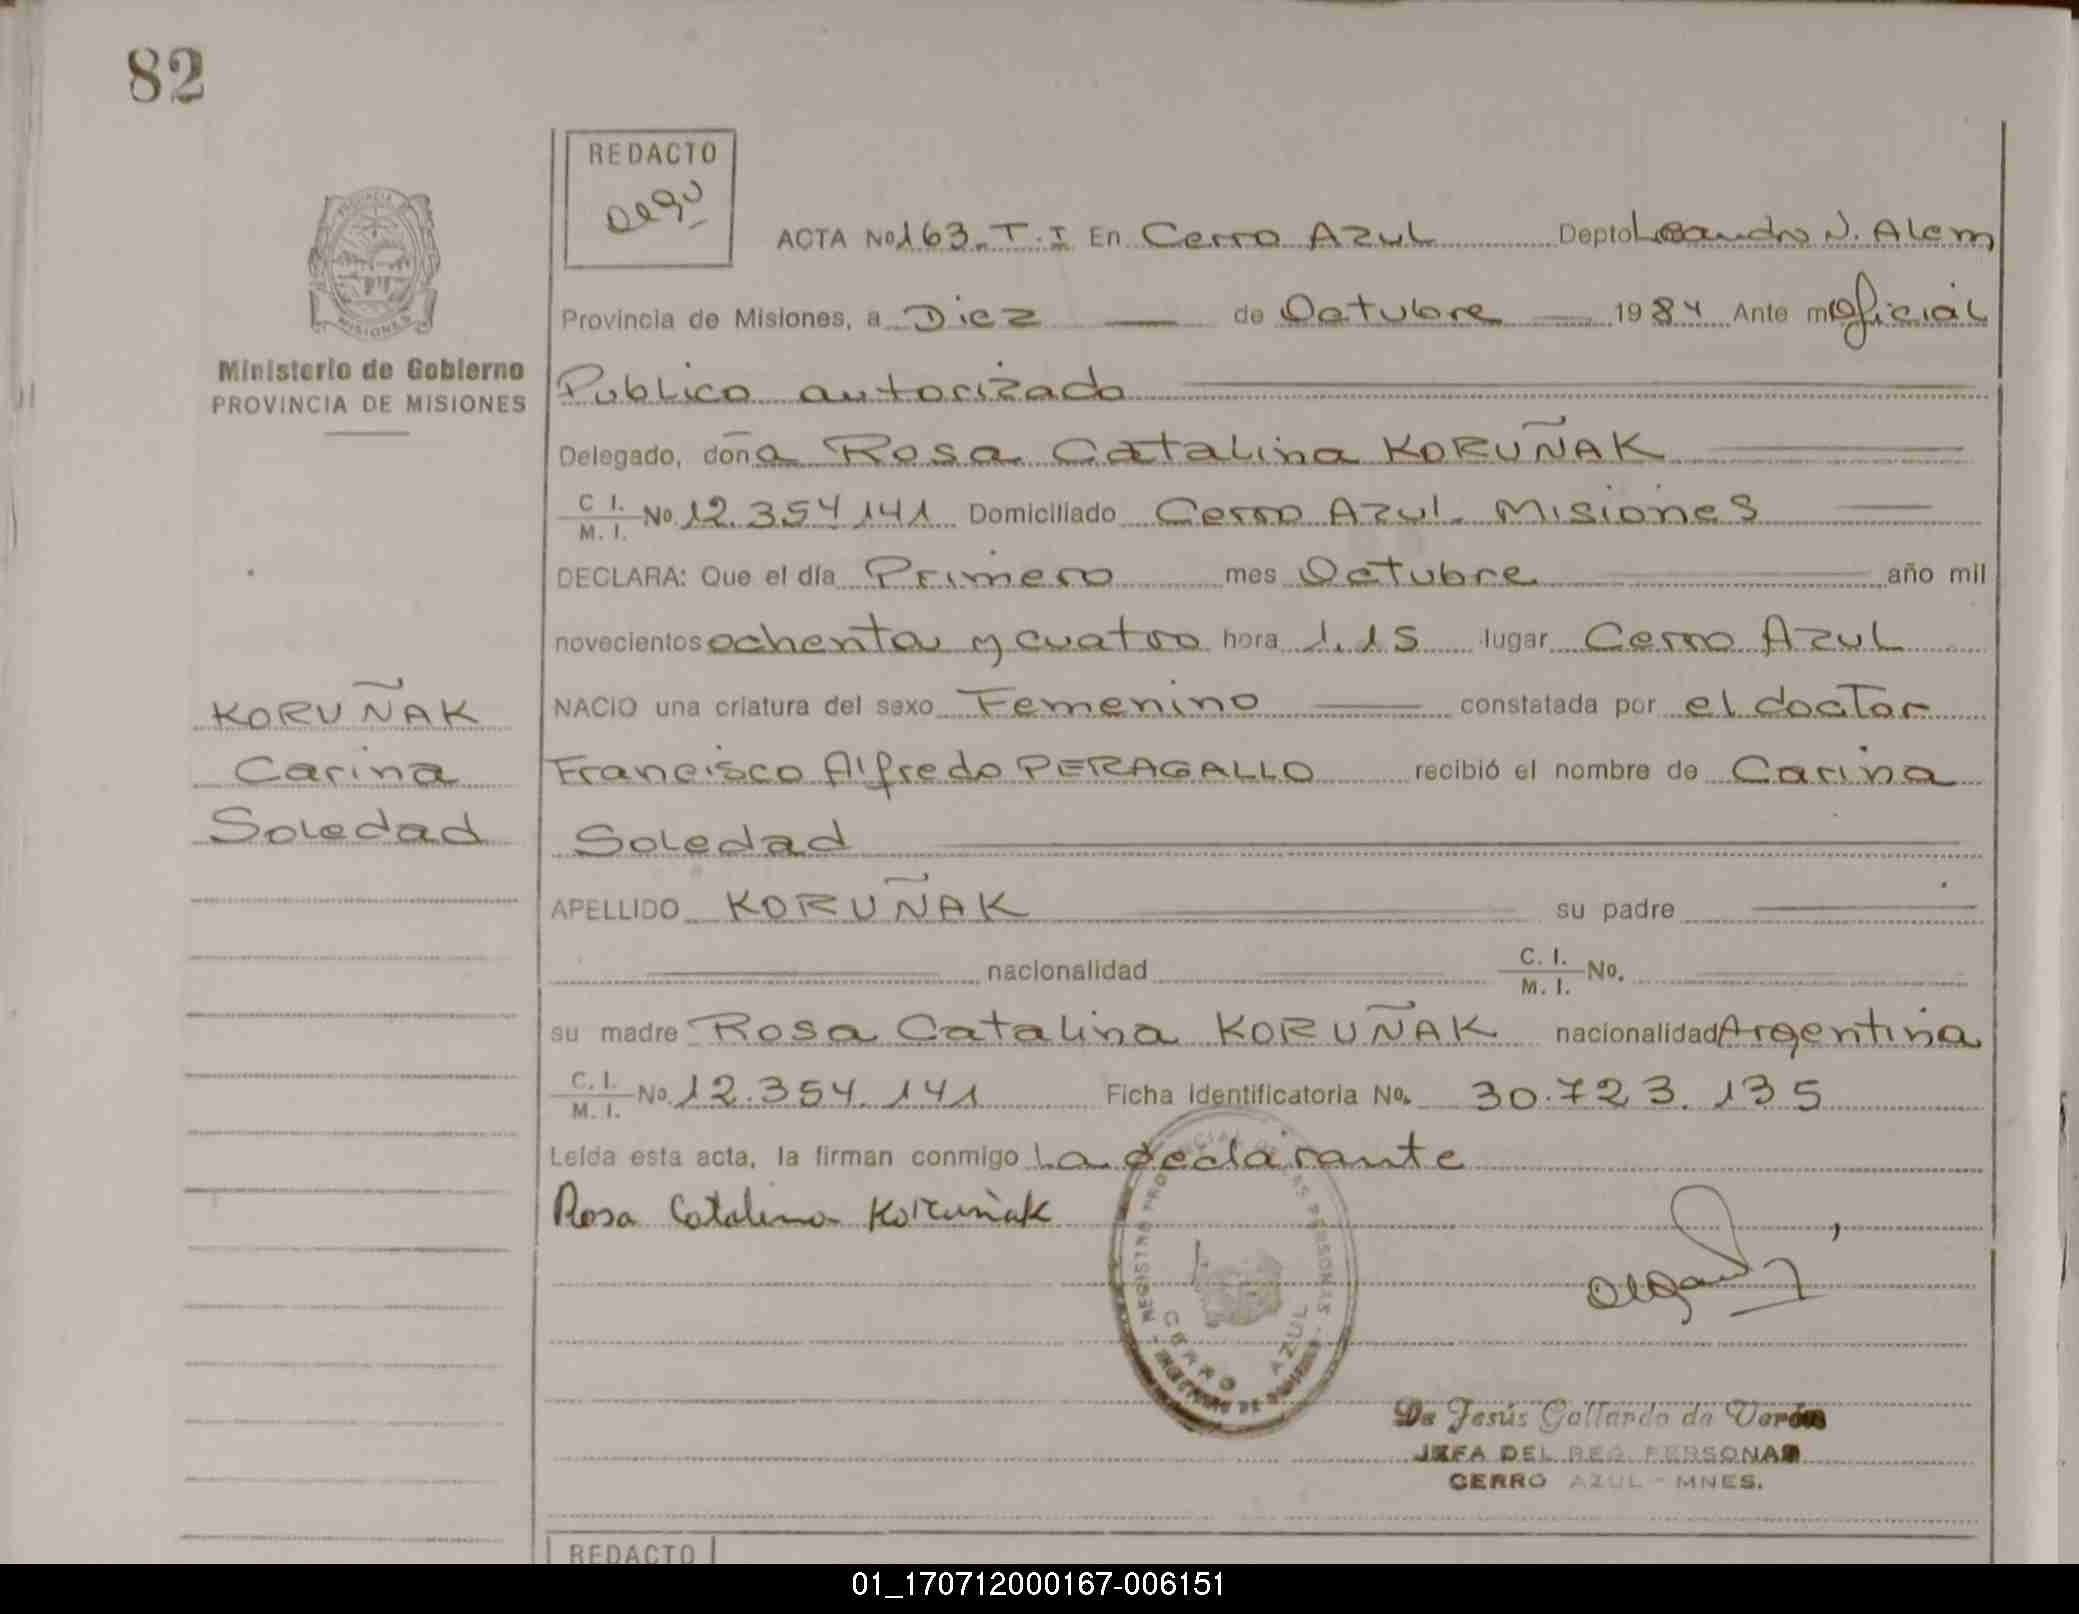 82
REDACTO
ACTA No 163. T. I En Cerro Azul Depto Leandro N. Alem
Provincia de Misiones, a Diez de Octubre 1984 Ante mi Oficial
Publico autorizado
Ministerio de Gobierno
PROVINCIA DE MISIONES
Delegado, doña Rosa Catalina KORUÑAK
C I. M. I. No 12.354 141 Domiciliado Cerro Azul. Misiones
DECLARA: Que el día Primero mes Octubre año mil
novecientos ochenta y cuatro hora 1.15 lugar Cerro Azul
NACIO una criatura del sexo Femenino constatada por el doctor
Francisco Alfredo PERAGALLO recibió el nombre de Carina
Soledad
KORUÑAK
Carina
Soledad
APELLIDO KORUÑAK su padre
nacionalidad C. I. M. I. No.
su madre Rosa Catalina KORUÑAK nacionalidad Argentina
C. I. M. I. No 12.354.141 Ficha Identificatoria No. 30.723.135
Leída esta acta, la firman conmigo la declarante
Rosa Catalina Koruñak
REGISTRO PROVINCIAL DE LAS PERSONAS
CERRO AZUL
De Jesús Gallardo de
JEFA DEL REG. PERSONAS
CERRO AZUL - MNES.
REDACTO
01_170712000167-006151